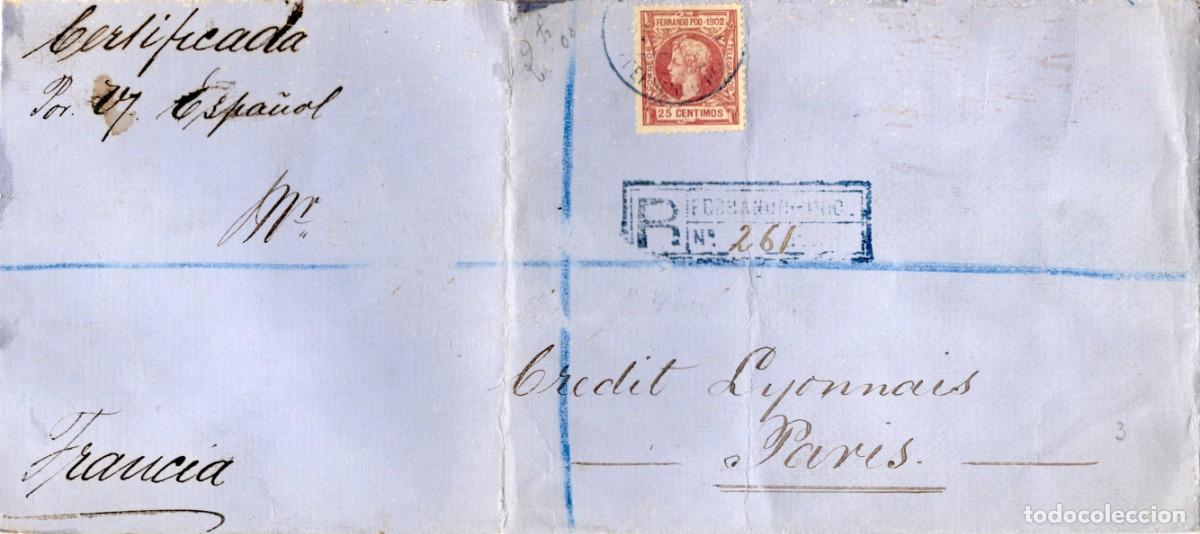 Certificada
Por Vꝛ. Español
Mr
FERNANDO POO-1902
CORREOS
Y TELEGRAFOS
25 CENTIMOS
R FERNANDO-POO.
Nº. 261
Credit Lyonnais
Paris.
Francia
3
todocoleccion